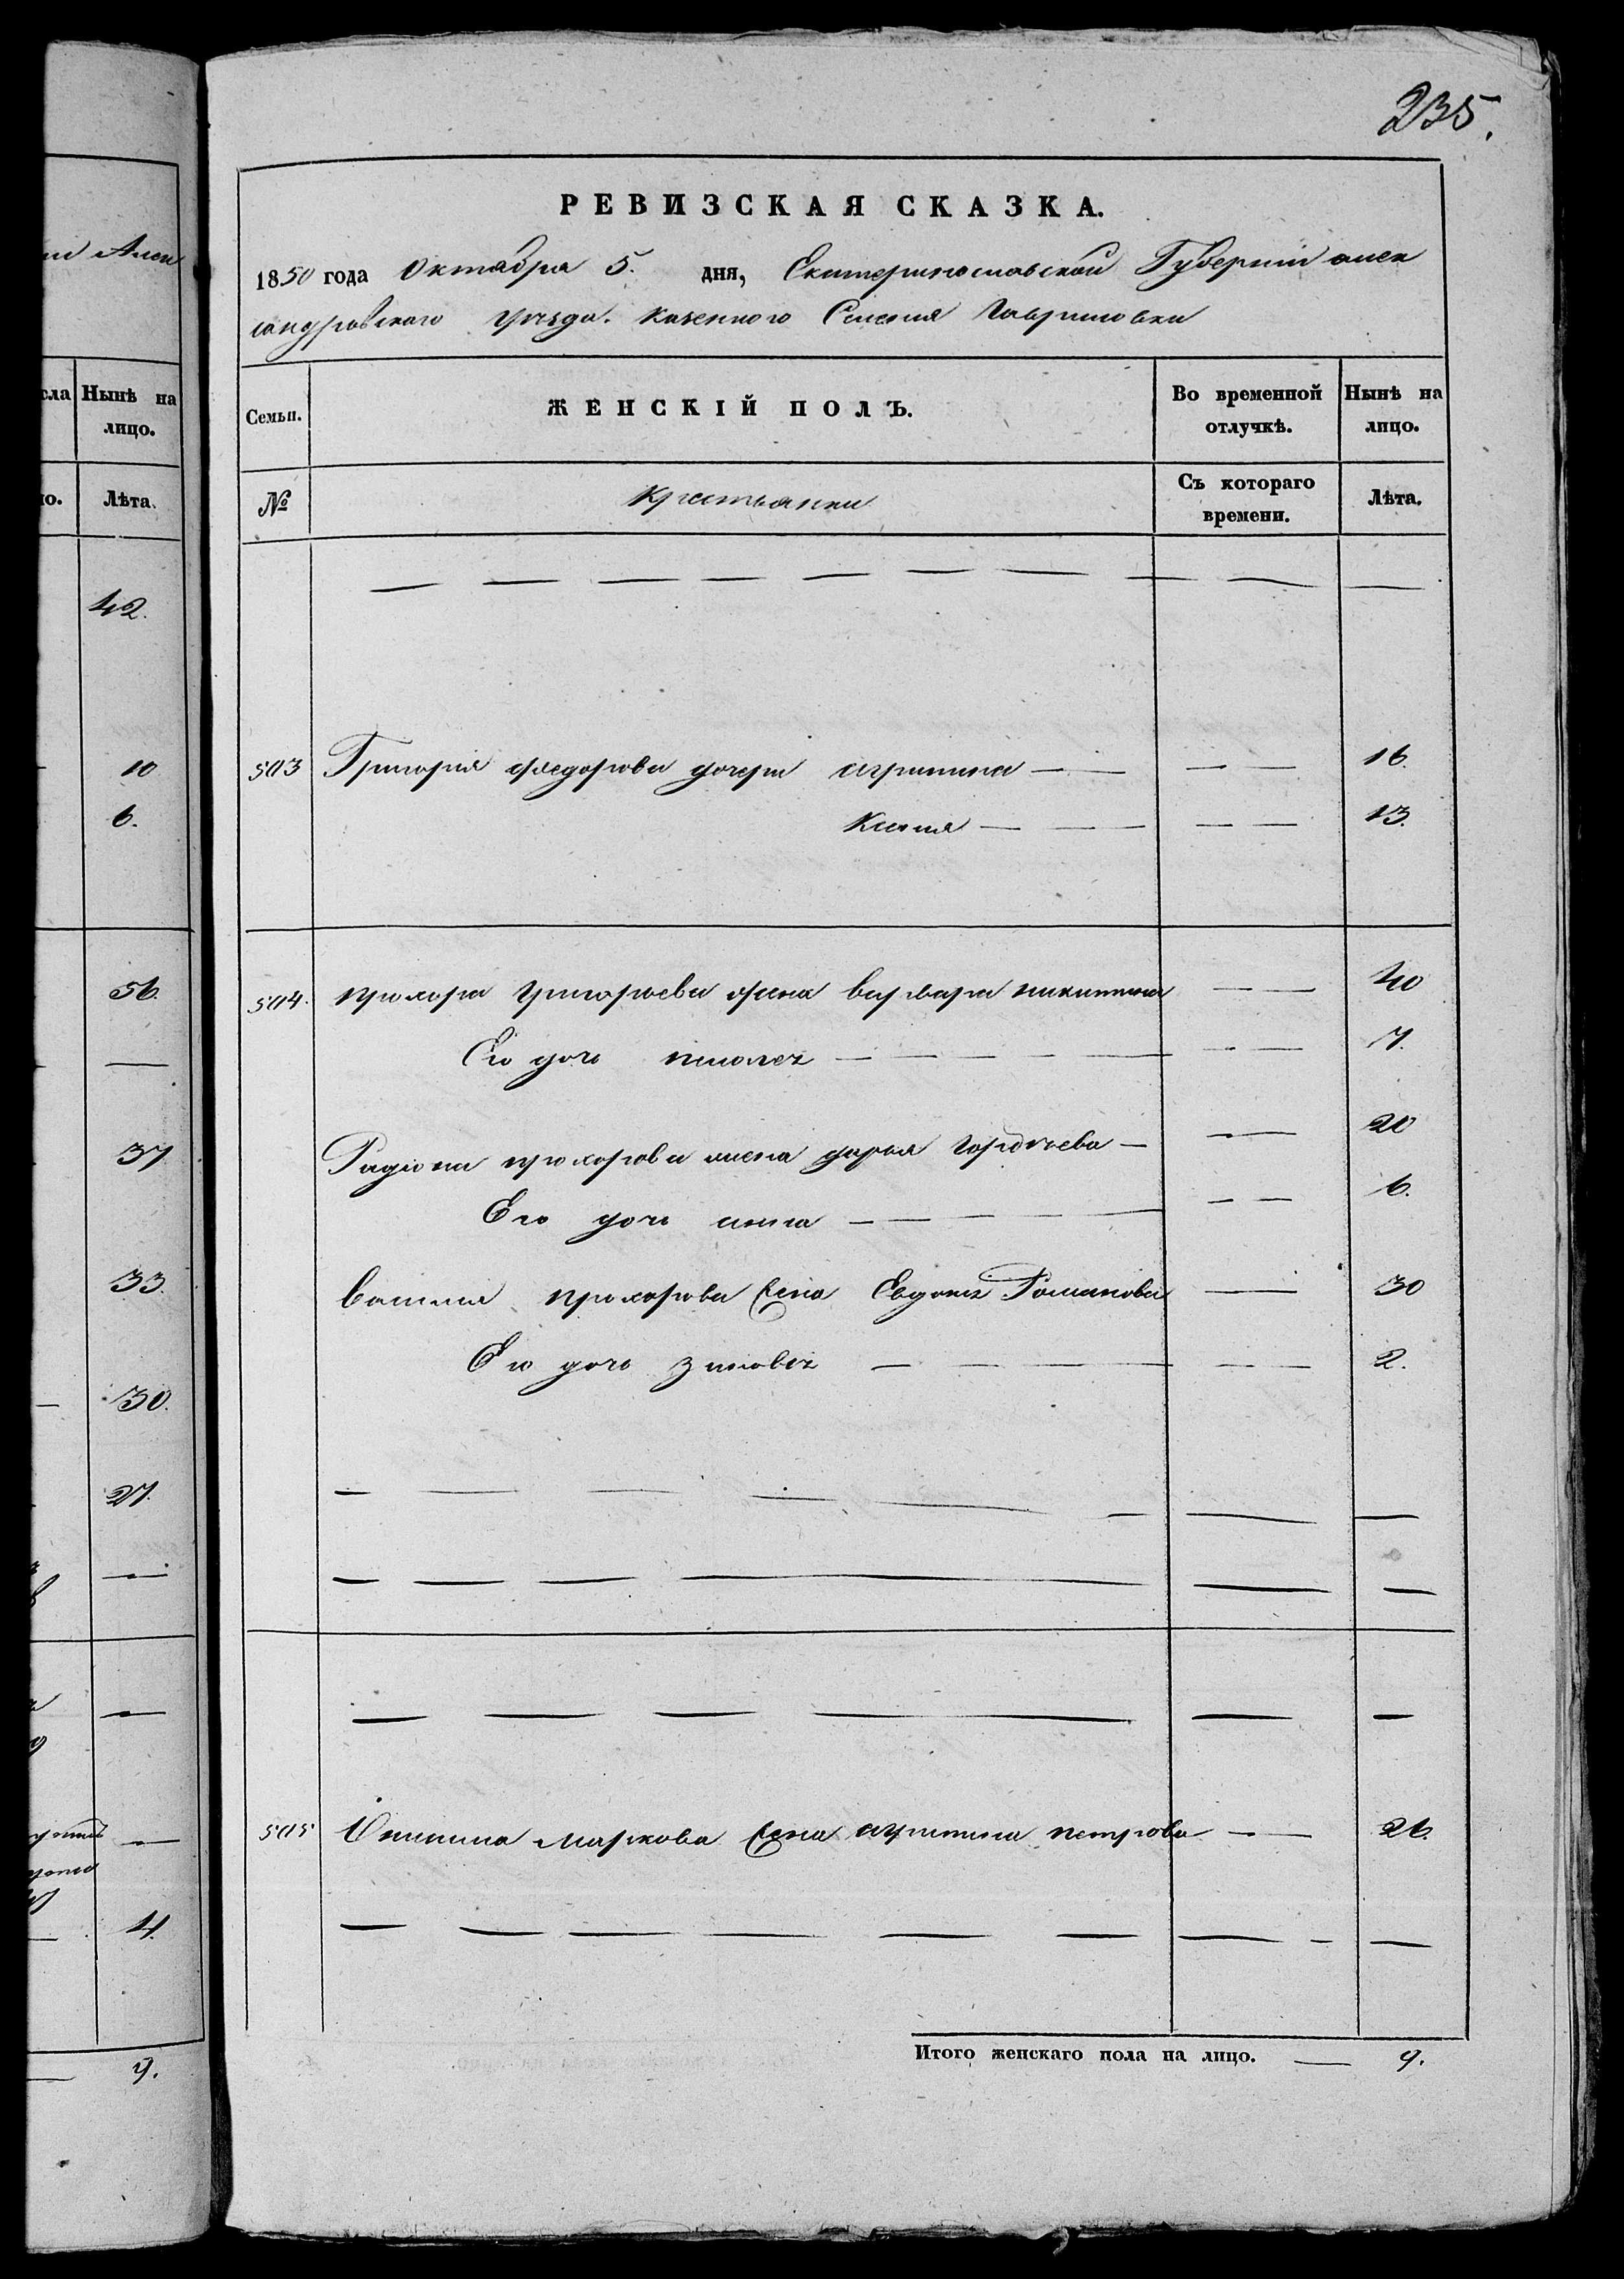 ни Алек
235.
РЕВИЗСКАЯ СКАЗКА.
1850 года Октября 5. дня, Екатеринославской Губернии алек
сандровского уезда. казенного Селения Гавриловки
сла Нынѣ на лицо.
Семьи. ЖЕНСКІЙ ПОЛЪ. Во временной отлучкѣ. Нынѣ на лицо.
ло. Лѣта.
№ крестьянки Съ котораго времени. Лѣта.
42.
10
6.
56.
—
37
33.
30.
27.
—
—
—
4.
9.
— — — — — — — — — —
503 Григория федорова дочери агрипина — — — — 16.
Ксения — — — — — 13.
504. прохора григорьева жена варвара никитина — — 40
Его дочь — — — — — — 7.
Радиона прохорова жена дарья Гордѣева — — — 20
Его дочь анна — — — — — — 6.
василия прохорова жена Евдокия Романова — — 30
Его дочь зиновия — — — — — 2.
— — — — — — — —
— — — — — —
— — — — — —
505 маркова жена агрипина петрова — — 26.
— — — — — — — — —
Итого женскаго пола на лицо. — 9.